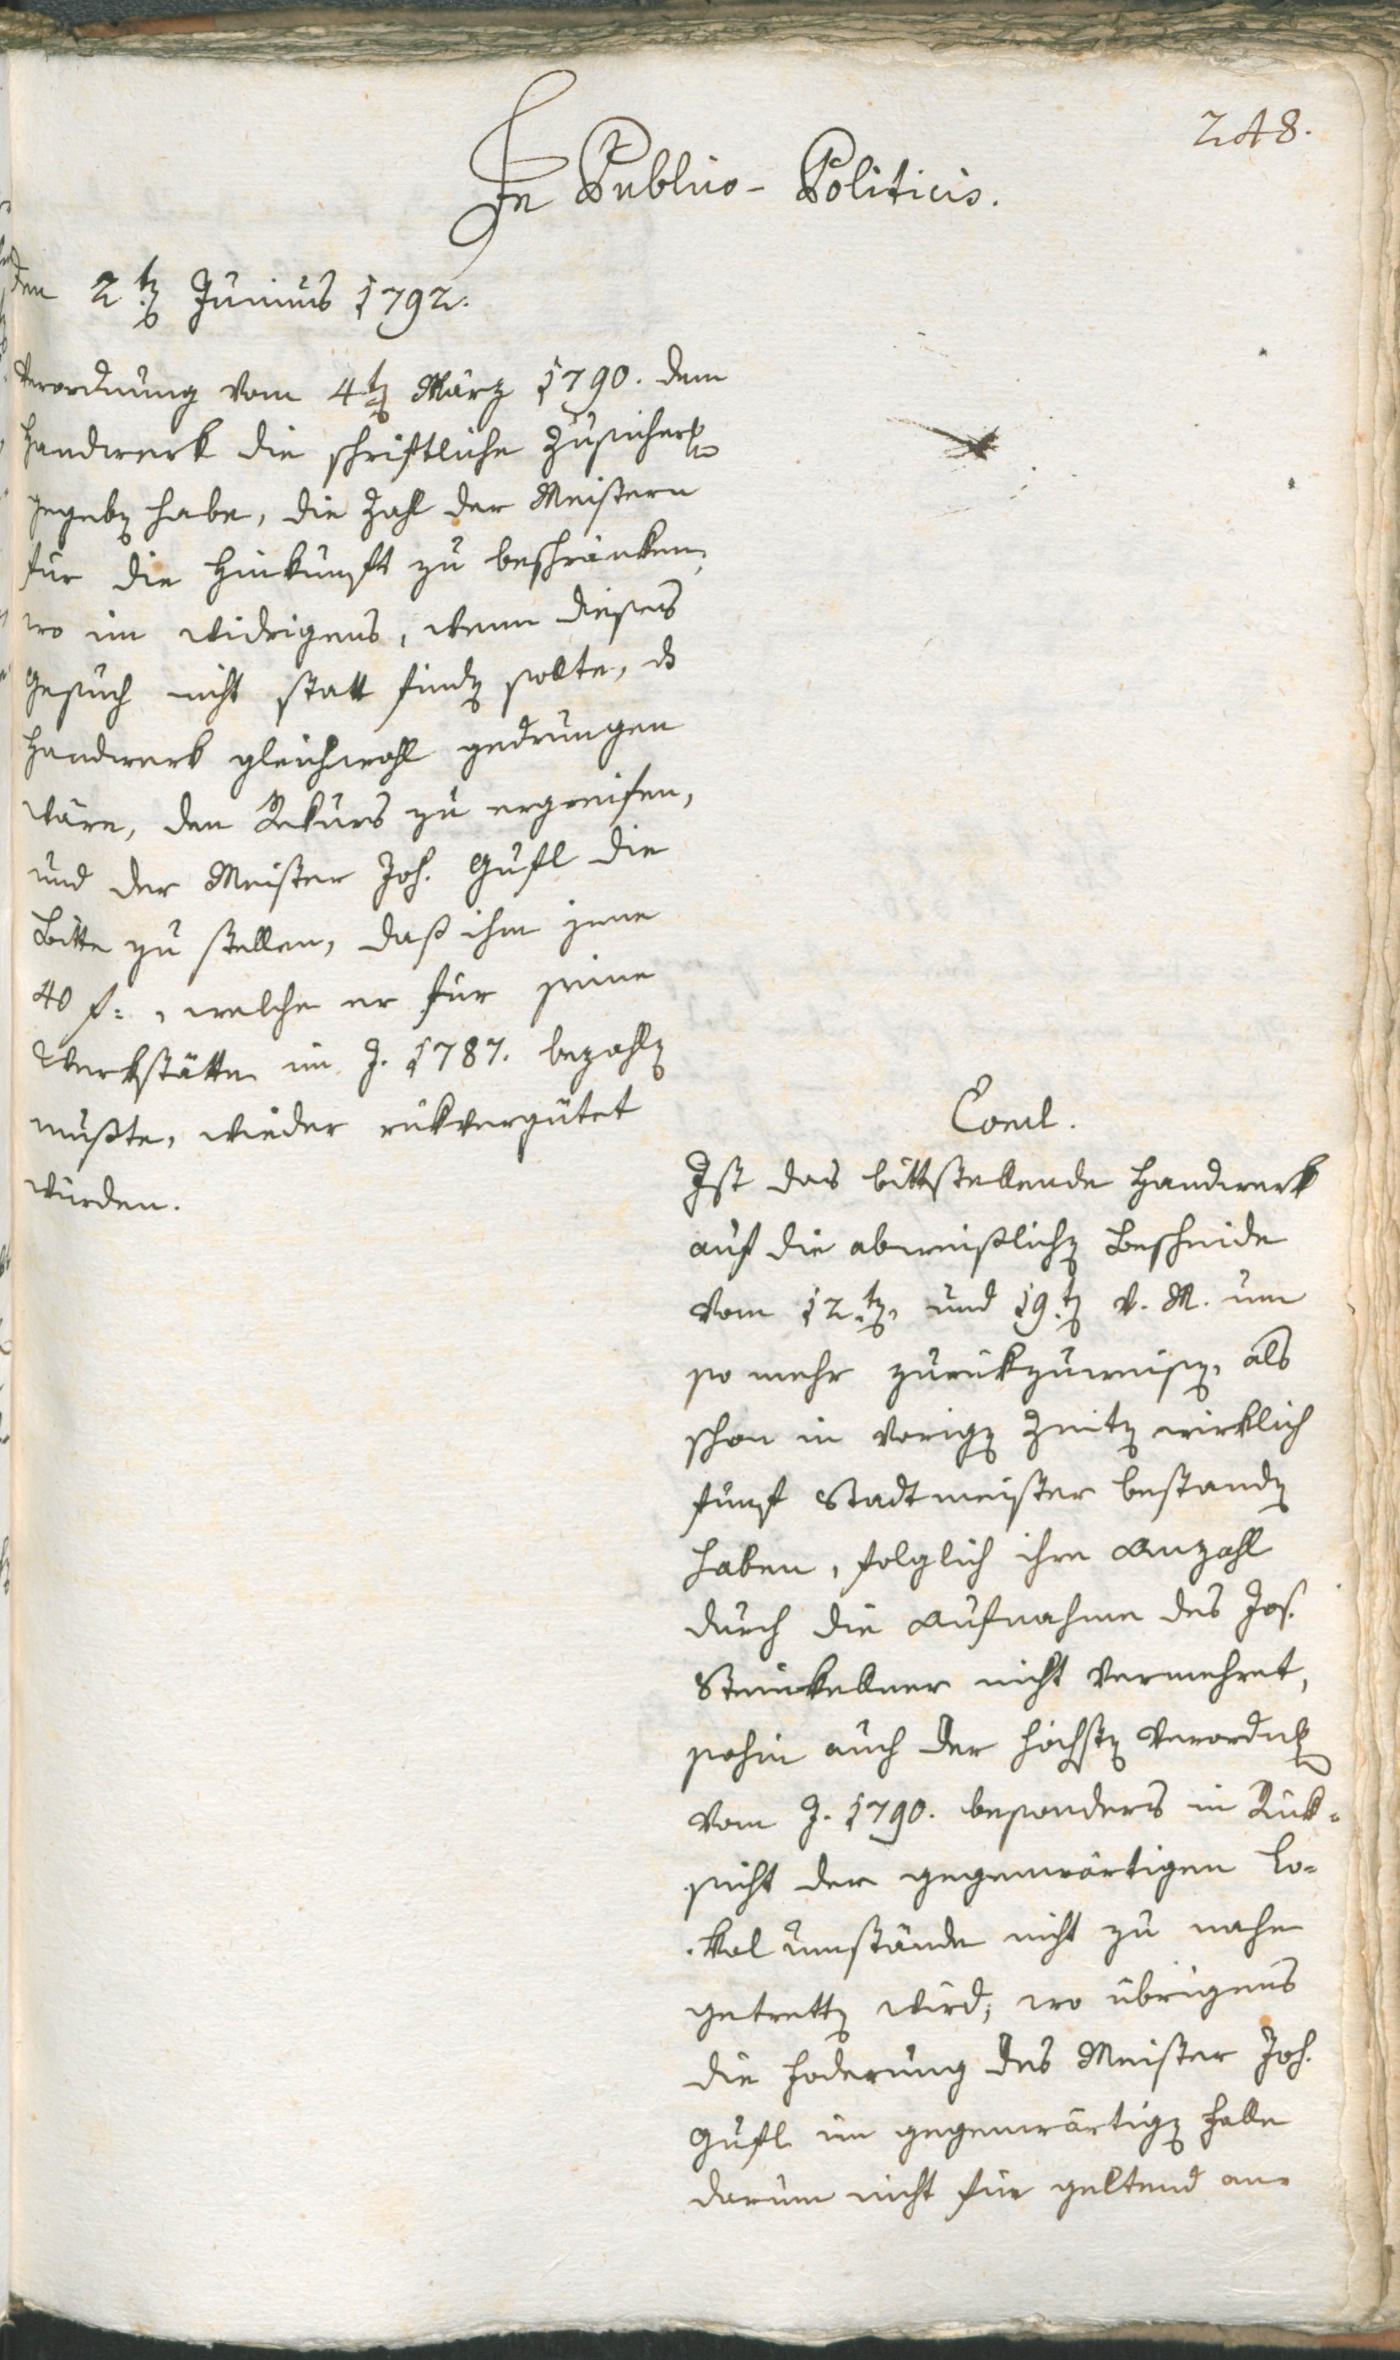 248.
In Publico-Politicis.
den 2t. Junius 1792.
Verordnung vom 4t. März 1790. dem
Handwerk die schriftliche Zusicherg
gegeben habe, die Zahl der Meistern
für die Hinkunft zu beschränken,
wo im widrigens, wenn dieses
Gesuch nicht statt finden sollte, das
Handwerk gleichwohl gedrungen
wäre, den Rekurs zu ergreifen,
und der Meister Joh. Gufl die
Bitte zu stellen, daß ihm jene
40 f:, welche er für seine
Werkstätte im J. 1787. bezahlen
mußte, wieder rükvergütet
würden.
Concl.
Ist das bittstellende Handwerk
auf die abweißlichen Bescheide
vom 12ten, und 19ten v. M. um
so mehr zurükzuweisen, als
schon in vorigen Zeiten wirklich
fünf Stadtmeister bestanden
haben, folglich ihre Anzahl
durch die Aufnahme des Jos.
Steinkellner nicht vermehret,
sohin auch der höchsten Verordng
vom J. 1790. besonders in Rük-
sicht der gegenwärtigen Lo-
kalumstände nicht zu nahe
getretten wird; wo übrigens
die Foderung des Meister Joh.
Gufl im gegenwärtigen Falle
darum nicht für geltend an-